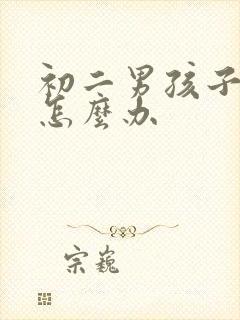 初二男孩子
怎麼办
宗巍